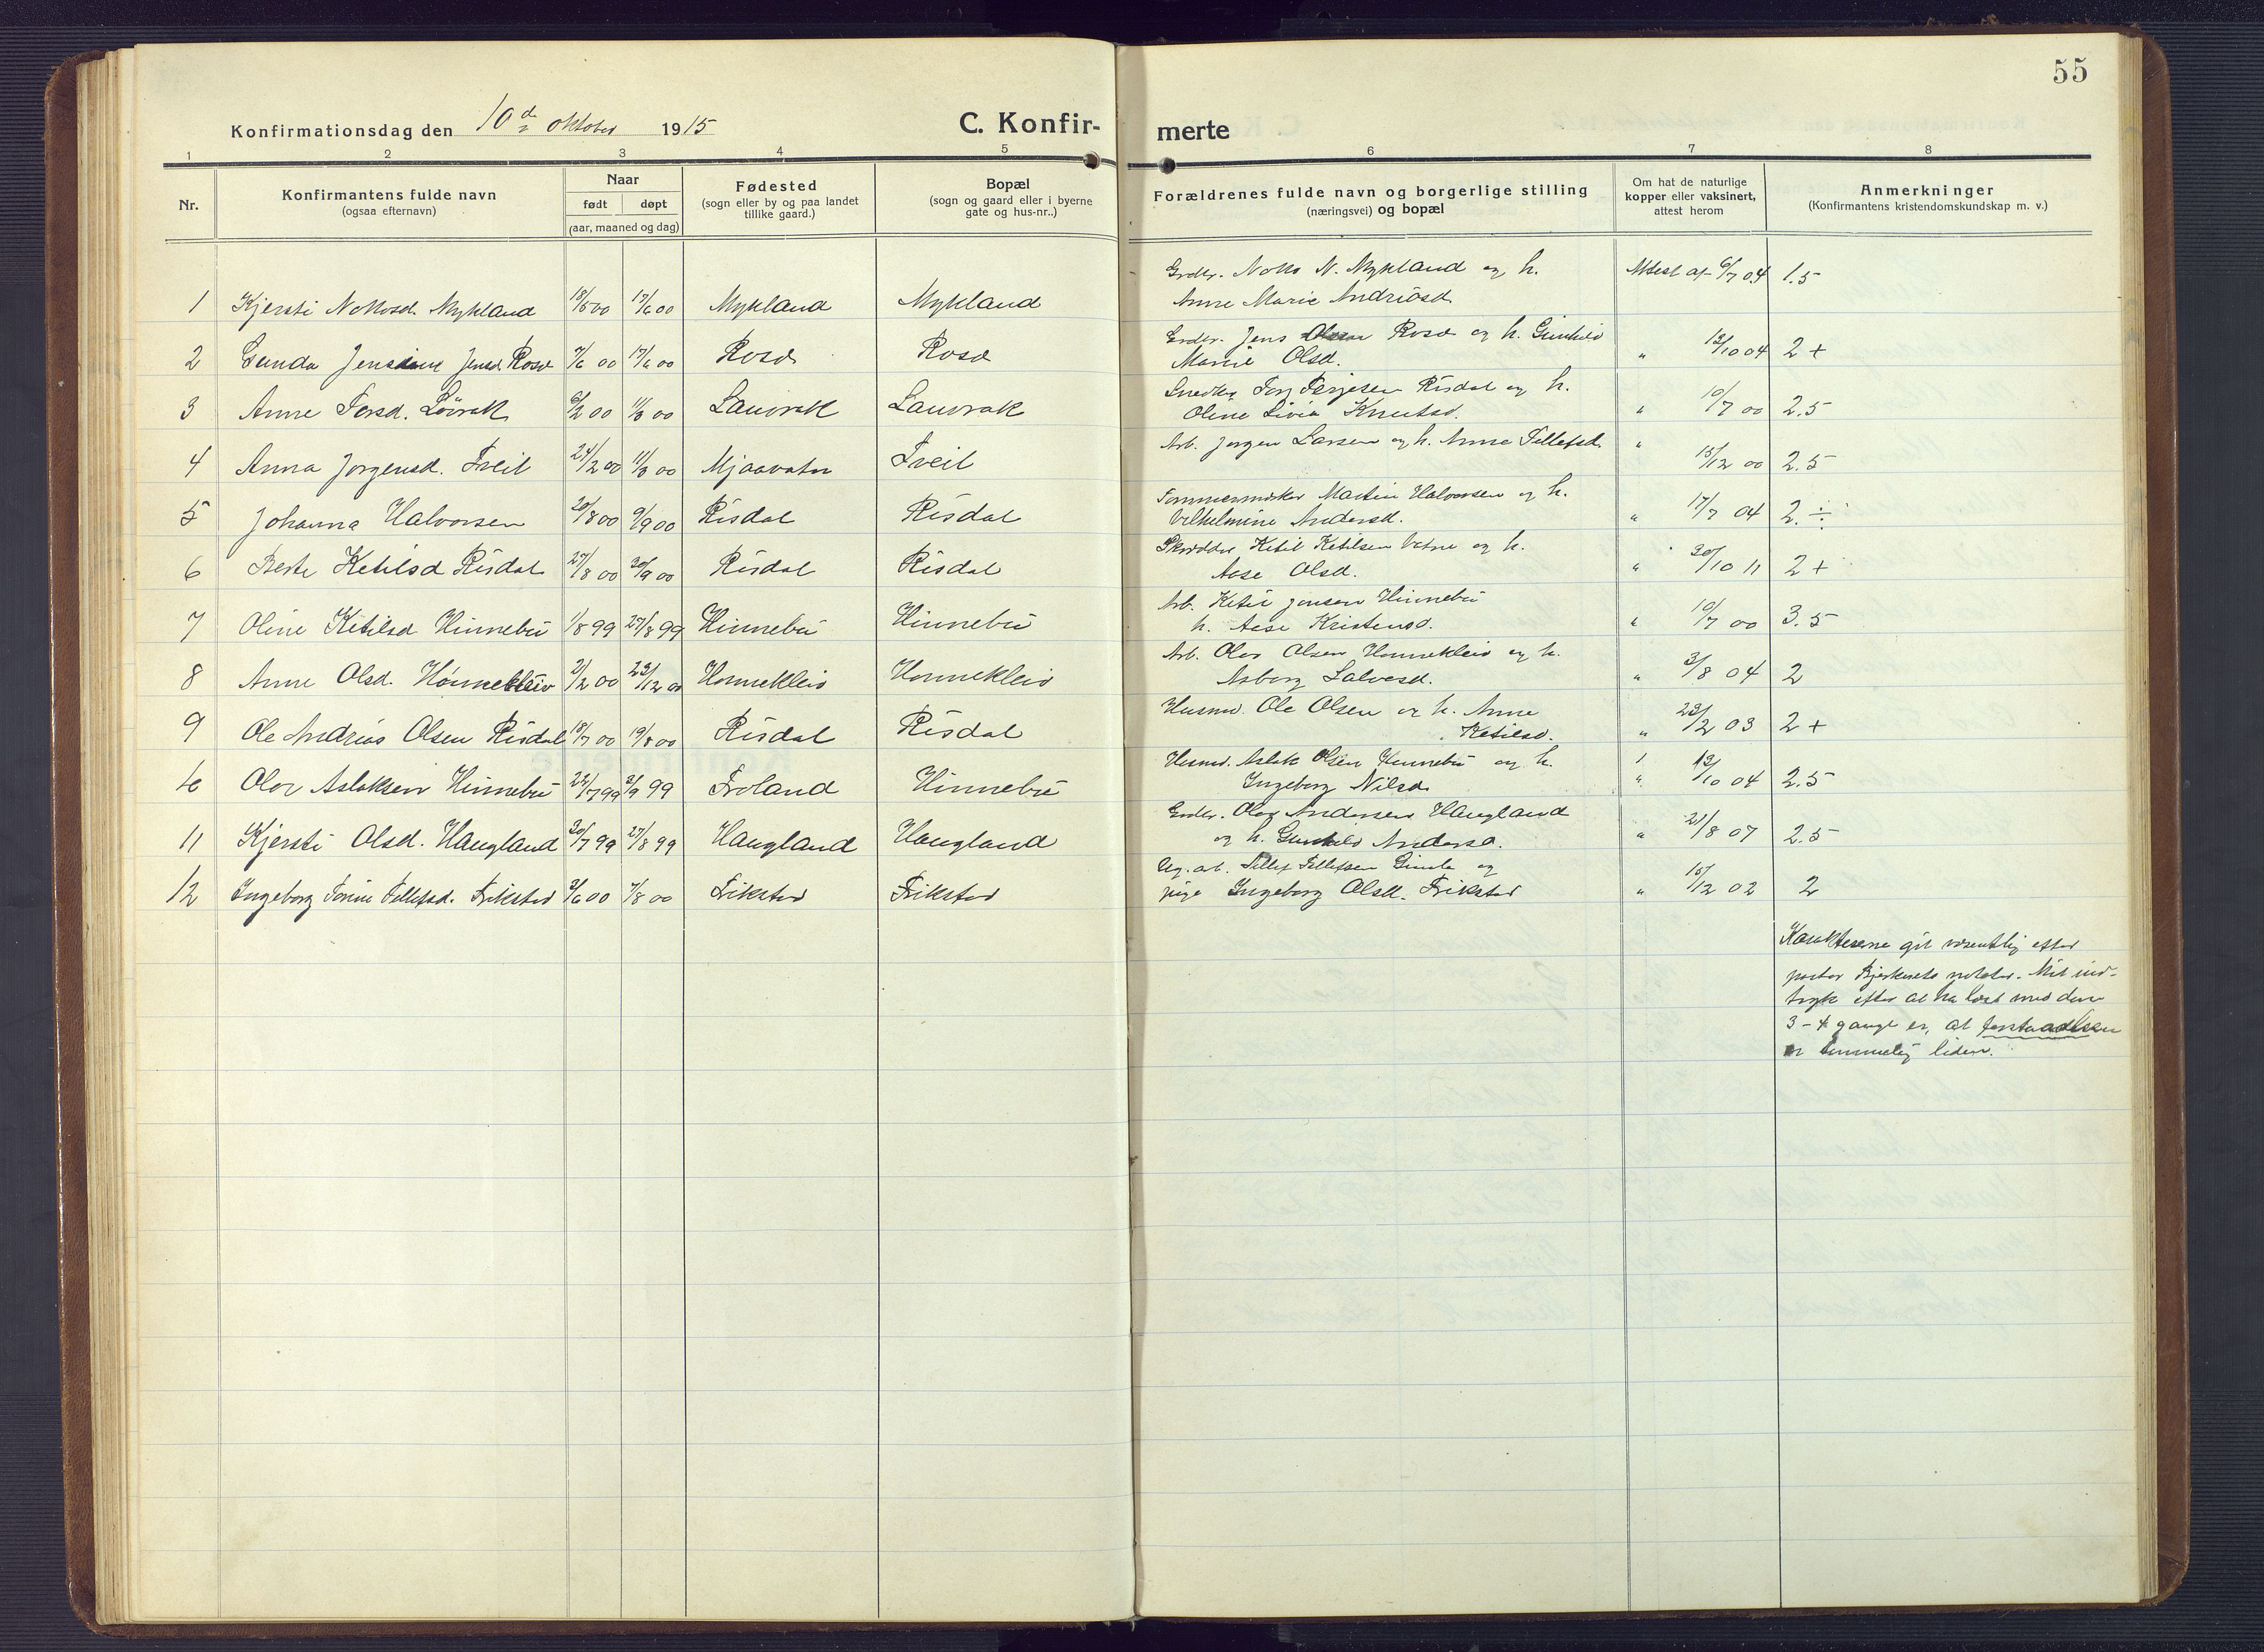 55
Konfirmationsdag den 10de oktober 1915
C. Konfir-
merte
1 2 3 4 5 6 7 8
Nr.
Konfirmantens fulde navn
(ogsaa efternavn)
Naar
født døpt
(aar, maaned og dag)
Fødested
(sogn eller by og paa landet
tillike gaard.)
Bopæl
(sogn og gaard eller i byerne
gate og hus-nr..)
Forældrenes fulde navn og borgerlige stilling
(næringsvei) og bopæl
Om hat de naturlige
kopper eller vaksinert,
attest herom
Anmerkninger
(Konfirmantens kristendomskundskap m. v.)
Grdbr. Notto N. Mykland og h. Attest af 6/7 04 1.5
1 Kjersti Nottosd. Mykland 18/5 00 17/6 00 Mykland Mykland Anne Marie Andriasd.
Grdbr. Jens Rosø og h. Gunhild
2 Gunda Jensine Jensd. Rosø 7/6 00 17/6 00 Rosø Rosø Marie Olsd. " 12/10 04 2+
Snedker Terjesen Risdal og h.
3 Anne Torsd. Løvrak 6/2 00 11/3 00 Lauvrak Lauvrak Oline Livia Knutsd. " 10/7 00 2.5
Arb. Jørgen Larsen og h. Anne Tellefsd. "
4 Anna Jørgensd. Tveit 24/2 00 11/3 00 Mjaavatn Tveit 15/12 00 2.5
Tømmermisker Martin Halvorsen og h.
5 Johanna Halvorsen 20/8 00 9/9 00 Risdal Risdal Vilhelmine Andersd. " 17/7 04 2.÷
Skrædder Ketil Ketilsen Vatne og h.
6 Berte Ketilsd Risdal 27/8 00 30/9 00 Risdal Risdal Aase Olsd. " 30/10 11 2+
Arb. Ketil Jensen Hinnebu
7 Oline Ketilsd Hinnebu 1/8 99 27/8 99 Hinnebu Hinnebu h. Aase Kristensd. " 10/7 00 3.5
Arb. Olav Olsen Honnekleiv og h.
8 Anne Olsd. Hónnekleiv 21/2 00 23/12 00 Honnekleiv Honnekleiv Asborg Salvesd. " 3/8 04 2
Husmd. Ole Olsen og h. Anne
9 Ole Andrias Olsen Risdal 18/7 00 19/8 00 Risdal Risdal Ketilsd. " 23/2 03 2+
Husmd. Aslak Olsen Hinnebu og h.
10 Olav Aslaksen Hinnebu 22/7 99 3/9 99 Froland Hinnebu Ingeborg Nilsd. " 12/10 04 2.5
Grdbr. Olav Andersen Haugland
11 Kjersti Olsd. Haugland 30/7 99 27/8 99 Haugland Haugland og h. Gunhild Andersd. " 21/8 07 2.5
Ug. arb. Tellef Tellefsen Gimle og
12 Ingeborg Torine Tellefsd. Trikstad 3/6 00 7/8 00 Trikstad Trikstad pige Ingeborg Olsd. Trikstad " 15/12 02 2
Karaktererne git væsentlig efter
pastor Bjerknets notater. Mit ind-
tryk efter at ha læst med dem
3-4 gange er, at forstaaelsen
er temmelig liden.